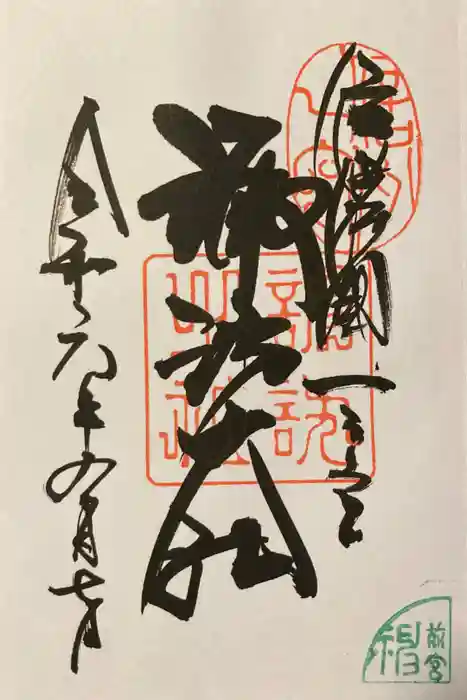 信濃國一之宮
諏訪大社
令和六年九月七日
諏訪
大社
前宮